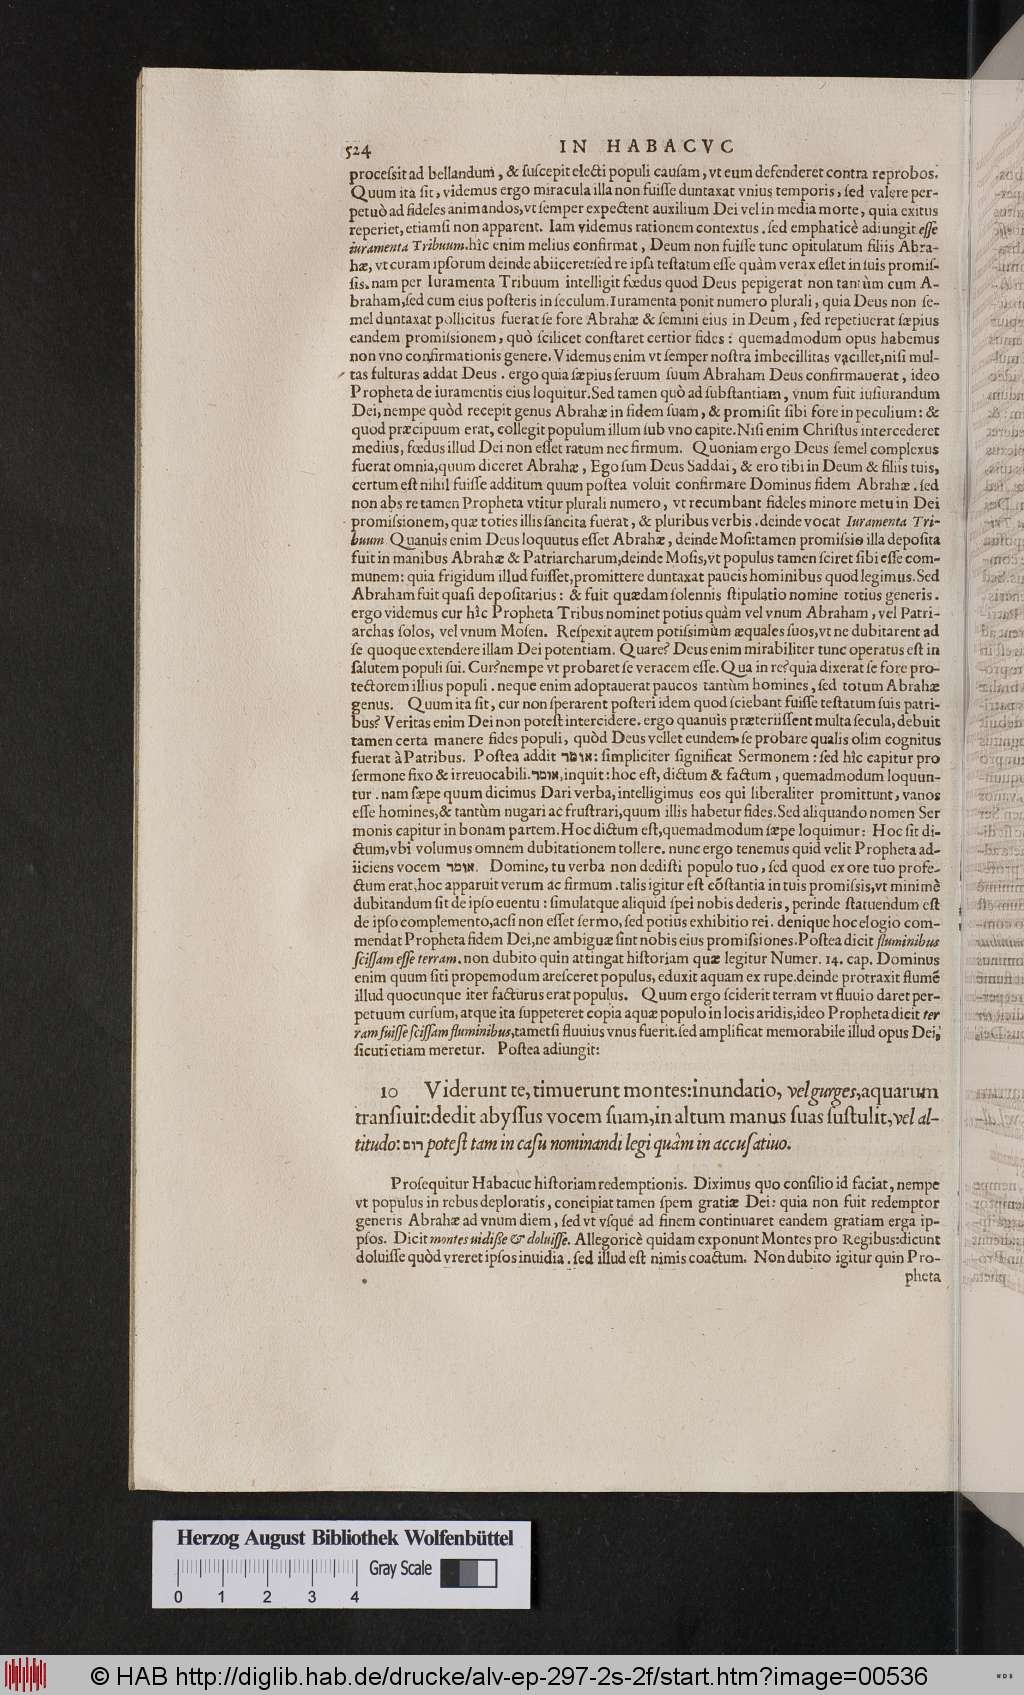 524 IN HABACVC
proceſsit ad bellandum, & ſuſcepit electi populi cauſam, vt eum defenderet contra reprobos.
Quum ita ſit, videmus ergo miracula illa non fuiſſe duntaxat vnius temporis, ſed valere per-
petuò ad fideles animandos, vt ſemper expectent auxilium Dei vel in media morte, quia exitus
reperiet, etiamſi non apparent. Iam videmus rationem contextus. ſed emphaticè adiungit eſſe
iuramenta Tribuum. hîc enim melius confirmat, Deum non fuiſſe tunc opitulatum filiis Abra-
hæ, vt curam ipſorum deinde abiiceret: ſed re ipſa teſtatum eſſe quàm verax eſſet in ſuis promiſ-
ſis. nam per Iuramenta Tribuum intelligit fœdus quod Deus pepigerat non tantùm cum A-
braham, ſed cum eius poſteris in ſeculum. Iuramenta ponit numero plurali, quia Deus non ſe-
mel duntaxat pollicitus fuerat ſe fore Abrahæ & ſemini eius in Deum, ſed repetiuerat ſæpius
eandem promiſsionem, quò ſcilicet conſtaret certior fides: quemadmodum opus habemus
non vno confirmationis genere. Videmus enim vt ſemper noſtra imbecillitas vacillet, niſi mul-
tas fulturas addat Deus. ergo quia ſæpius ſeruum ſuum Abraham Deus confirmauerat, ideo
Propheta de iuramentis eius loquitur. Sed tamen quò ad ſubſtantiam, vnum fuit iuſiurandum
Dei, nempe quòd recepit genus Abrahæ in fidem ſuam, & promiſit ſibi fore in peculium: &
quod præcipuum erat, collegit populum illum ſub vno capite. Niſi enim Chriſtus intercederet
medius, fœdus illud Dei non eſſet ratum nec firmum. Quoniam ergo Deus ſemel complexus
fuerat omnia, quum diceret Abrahæ, Ego ſum Deus Saddai, & ero tibi in Deum & filiis tuis,
certum eſt nihil fuiſſe additum quum poſtea voluit confirmare Dominus fidem Abrahæ. ſed
non abs re tamen Propheta vtitur plurali numero, vt recumbant fideles minore metu in Dei
promiſsionem, quæ toties illis ſancita fuerat, & pluribus verbis. deinde vocat Iuramenta Tri-
buum Quanuis enim Deus loquutus eſſet Abrahæ, deinde Moſi: tamen promiſsio illa depoſita
fuit in manibus Abrahæ & Patriarcharum, deinde Moſis, vt populus tamen ſciret ſibi eſſe com-
munem: quia frigidum illud fuiſſet, promittere duntaxat paucis hominibus quod legimus. Sed
Abraham fuit quaſi depoſitarius: & fuit quædam ſolennis ſtipulatio nomine totius generis.
ergo videmus cur hîc Propheta Tribus nominet potius quàm vel vnum Abraham, vel Patri-
archas ſolos, vel vnum Moſen. Reſpexit autem potiſsimùm æquales ſuos, vt ne dubitarent ad
ſe quoque extendere illam Dei potentiam. Quare? Deus enim mirabiliter tunc operatus eſt in
ſalutem populi ſui. Cur? nempe vt probaret ſe veracem eſſe. Qua in re? quia dixerat ſe fore pro-
tectorem illius populi. neque enim adoptauerat paucos tantùm homines, ſed totum Abrahæ
genus. Quum ita ſit, cur non ſperarent poſteri idem quod ſciebant fuiſſe teſtatum ſuis patri-
bus? Veritas enim Dei non poteſt intercidere. ergo quanuis præteriiſſent multa ſecula, debuit
tamen certa manere fides populi, quòd Deus vellet eundem ſe probare qualis olim cognitus
fuerat à Patribus. Poſtea addit אומר: ſimpliciter ſignificat Sermonem: ſed hîc capitur pro
ſermone fixo & irreuocabili. אומר, inquit: hoc eſt, dictum & factum, quemadmodum loquun-
tur. nam ſæpe quum dicimus Dari verba, intelligimus eos qui liberaliter promittunt, vanos
eſſe homines, & tantùm nugari ac fruſtrari, quum illis habetur fides. Sed aliquando nomen Ser
monis capitur in bonam partem. Hoc dictum eſt, quemadmodum ſæpe loquimur: Hoc ſit di-
ctum, vbi volumus omnem dubitationem tollere. nunc ergo tenemus quid velit Propheta ad-
iiciens vocem אומר. Domine, tu verba non dediſti populo tuo, ſed quod ex ore tuo profe-
ctum erat, hoc apparuit verum ac firmum. talis igitur eſt cõſtantia in tuis promiſsis, vt minimè
dubitandum ſit de ipſo euentu: ſimulatque aliquid ſpei nobis dederis, perinde ſtatuendum eſt
de ipſo complemento, acſi non eſſet ſermo, ſed potius exhibitio rei. denique hoc elogio com-
mendat Propheta fidem Dei, ne ambiguæ ſint nobis eius promiſsiones. Poſtea dicit fluminibus
ſciſſam eſſe terram. non dubito quin attingat hiſtoriam quæ legitur Numer. 14. cap. Dominus
enim quum ſiti propemodum areſceret populus, eduxit aquam ex rupe. deinde protraxit flumẽ
illud quocunque iter facturus erat populus. Quum ergo ſciderit terram vt fluuio daret per-
petuum curſum, atque ita ſuppeteret copia aquæ populo in locis aridis, ideo Propheta dicit ter
ram fuiſſe ſciſſam fluminibus, tametſi fluuius vnus fuerit. ſed amplificat memorabile illud opus Dei,
ſicuti etiam meretur. Poſtea adiungit:
10 Viderunt te, timuerunt montes: inundatio, vel gurges, aquarum
tranſiuit: dedit abyſſus vocem ſuam, in altum manus ſuas ſuſtulit, vel al-
titudo: רום poteſt tam in caſu nominandi legi quàm in accuſatiuo.
Proſequitur Habacuc hiſtoriam redemptionis. Diximus quo conſilio id faciat, nempe
vt populus in rebus deploratis, concipiat tamen ſpem gratiæ Dei: quia non fuit redemptor
generis Abrahæ ad vnum diem, ſed vt vſque ad finem continuaret eandem gratiam erga ip-
ſos. Dicit montes uidiße & doluiſſe. Allegoricè quidam exponunt Montes pro Regibus: dicunt
doluiſſe quòd vreret ipſos inuidia. ſed illud eſt nimis coactum. Non dubito igitur quin Pro-
pheta
Herzog August Bibliothek Wolfenbüttel
Gray Scale
0 1 2 3 4
© HAB http://diglib.hab.de/drucke/alv-ep-297-2s-2f/start.htm?image=00536